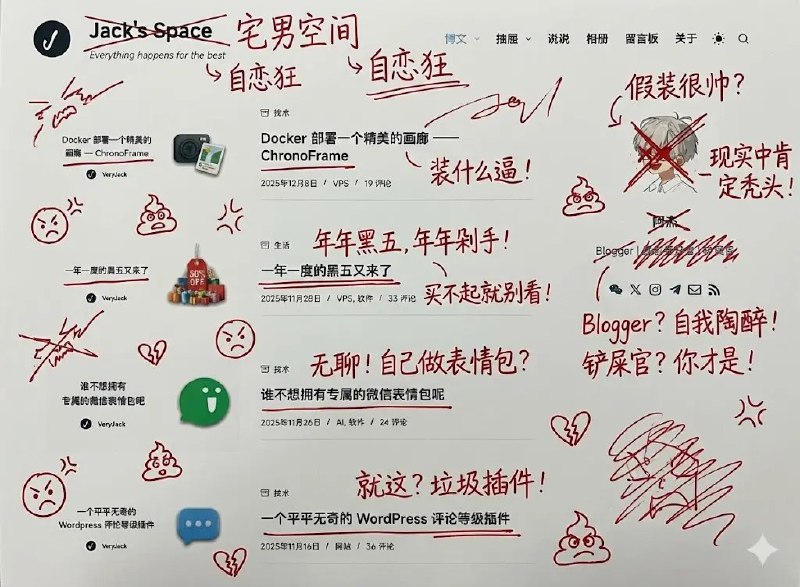 Jack's Space
宅男空间
博文 抽屉 说说 相册 留言板 关于
Everything happens for the best
自恋狂
自恋狂
假装很帅?
技术
Docker 部署一个精美的
画廊 — ChronoFrame
VeryJack
Docker 部署一个精美的画廊 ——
ChronoFrame
2025年12月8日 / VPS / 19 评论
装什么逼!
现实中肯
定秃头!
阿杰
Blogger
生活
年年黑五,年年剁手!
50%
OFF
一年一度的黑五又来了
VeryJack
一年一度的黑五又来了
2025年11月28日 / VPS, 软件 / 33 评论
买不起就别看!
Blogger?自我陶醉!
铲屎官?你才是!
技术
无聊!自己做表情包?
谁不想拥有
专属的微信表情包吧
VeryJack
谁不想拥有专属的微信表情包呢
2025年11月26日 / AI, 软件 / 24 评论
技术
就这?垃圾插件!
一个平平无奇的
Wordpress 评论等级插件
VeryJack
一个平平无奇的 WordPress 评论等级插件
2025年11月16日 / 网站 / 36 评论